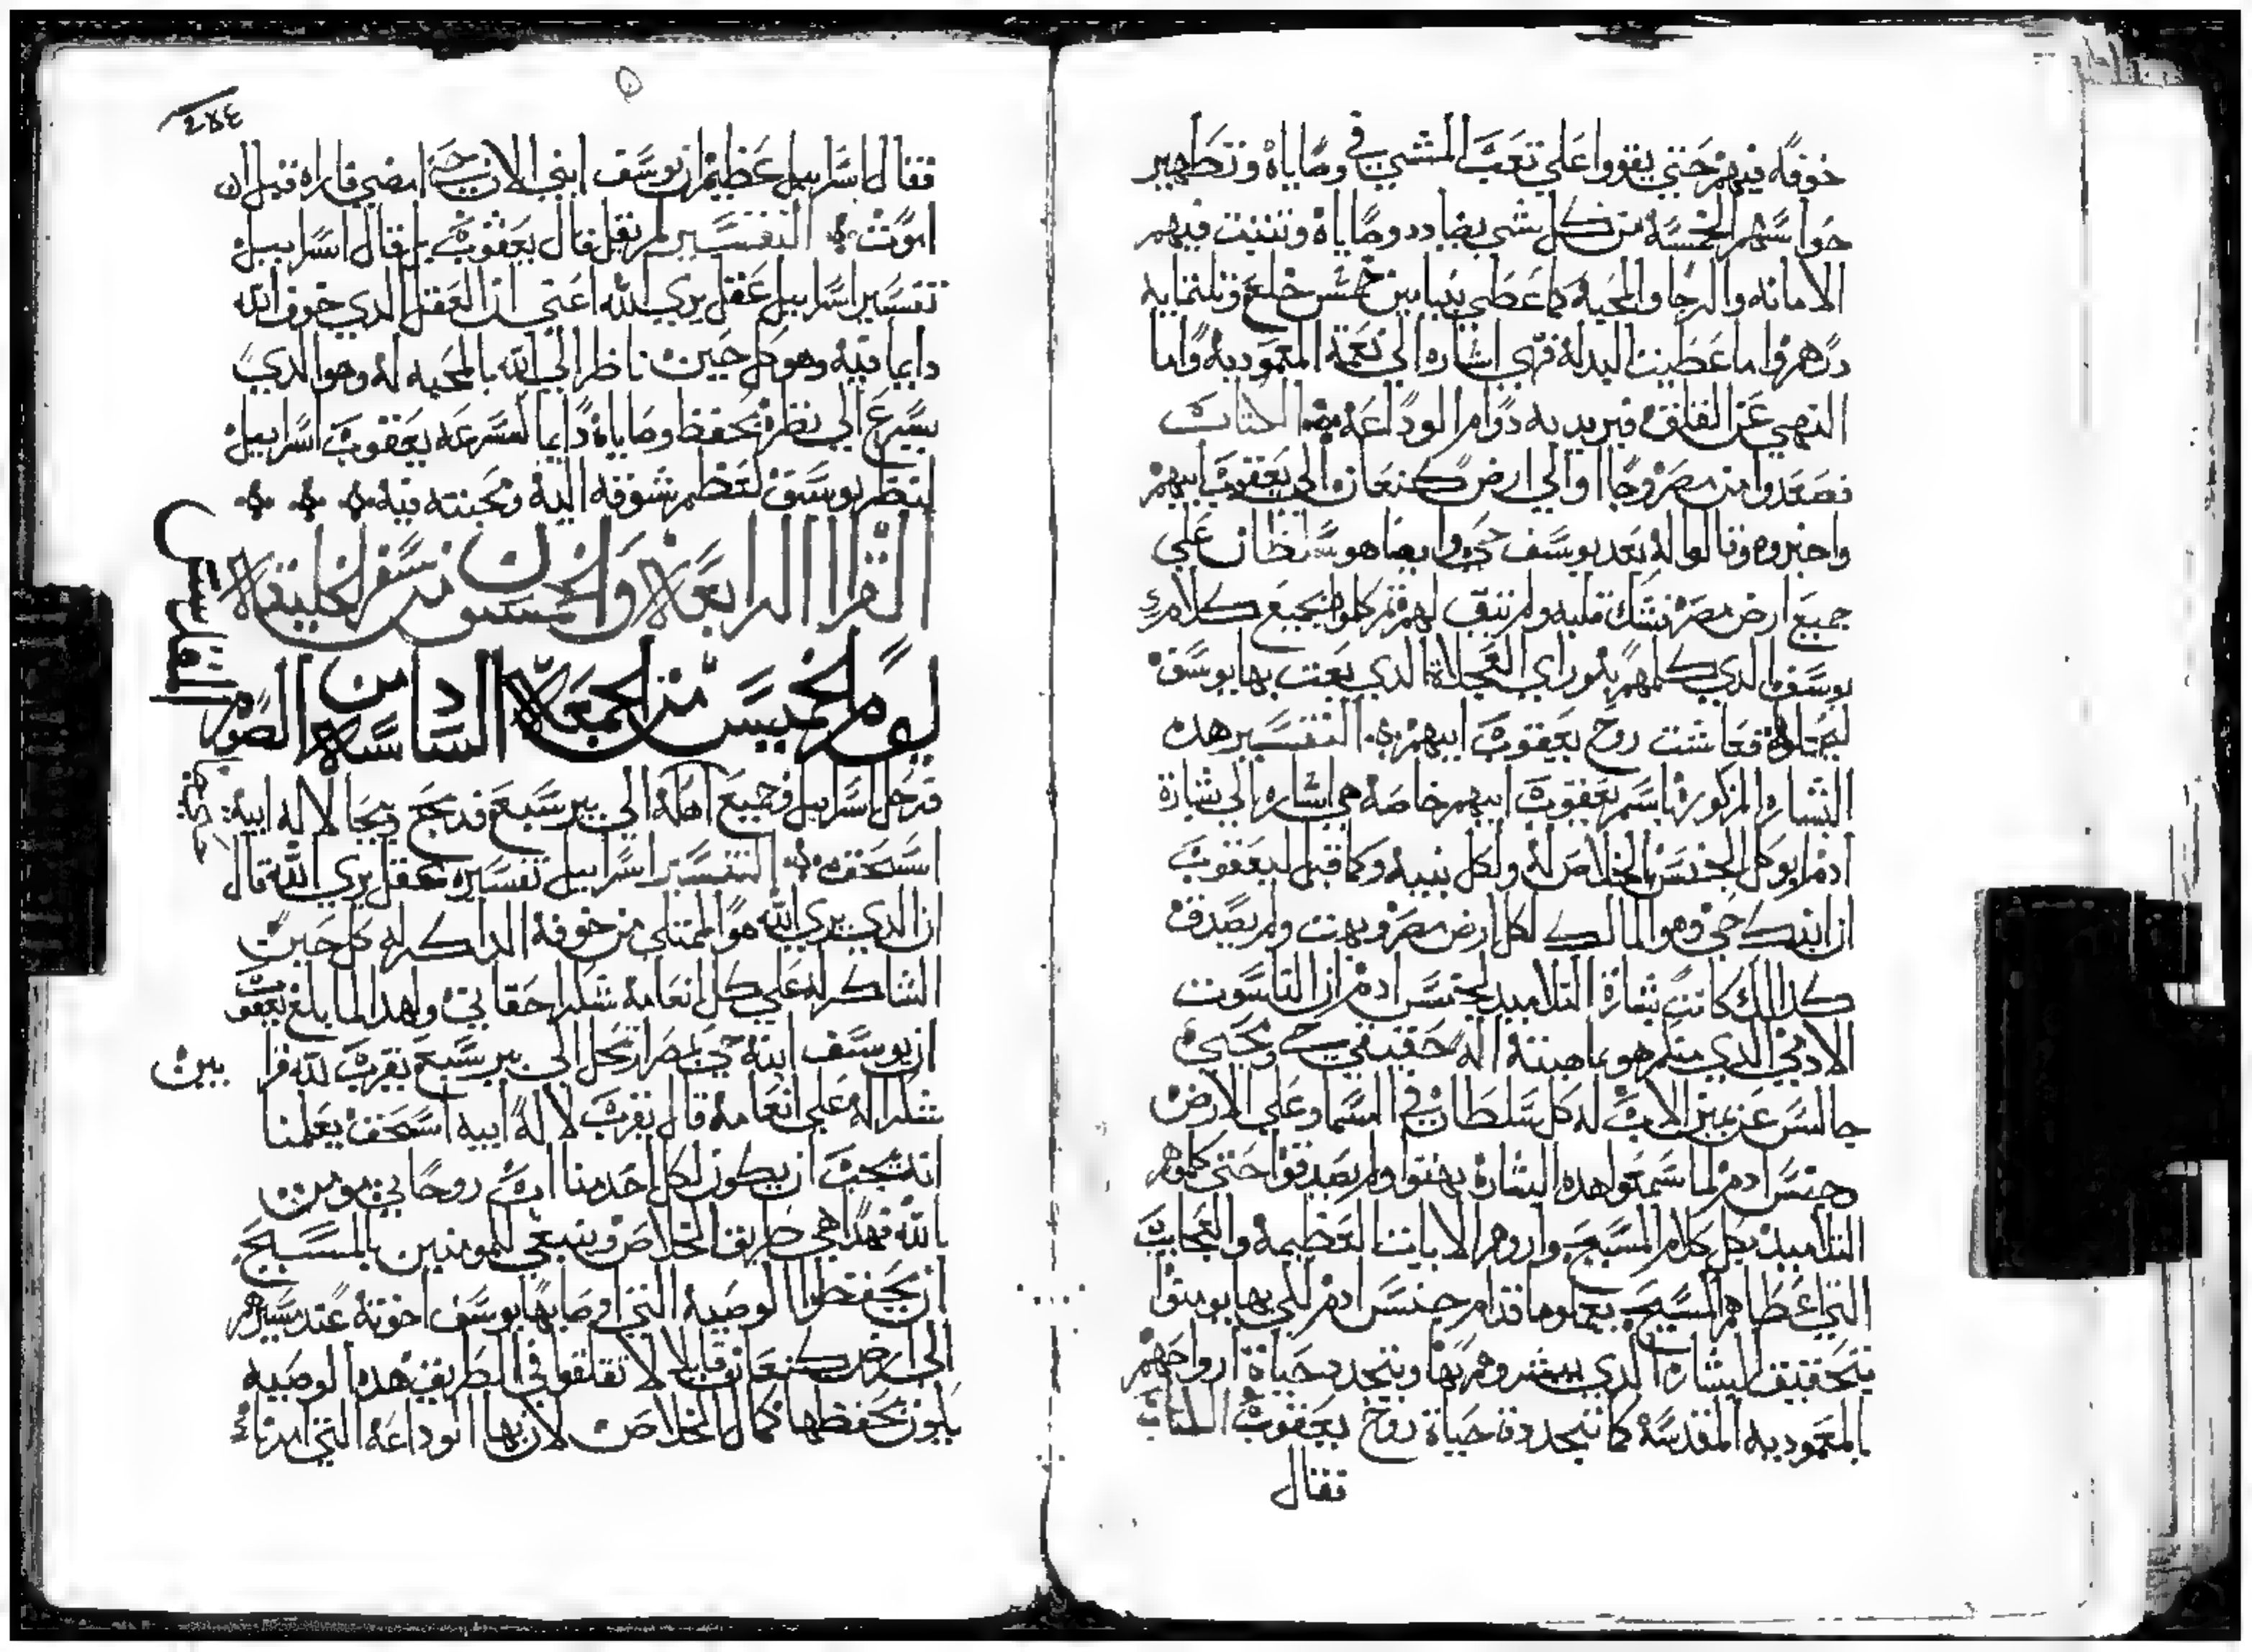 خوفه فيهم حتي يقووا علي تعب المشي في وصاياه وتطهير
حواسهم الخمسه من كل شي يضادد وصاياه وتثبت فيهم
الامانه والرجا والمحبه كما عطي بنيامين خمس خلع وتلتمايه
درهم واما عطيت البدله فهي اشاره الي نعمة المعموديه واما
النهي عن القلق فيريد به دوام الوداعه الكتاب
فصعدوا من مصر وجااوا الي ارض كنعان الي يعقوب ابيهم
واخبروه وقالوا له بعد يوسف حي وايضا هو سلطان علي
جميع ارض مصر فشك قلبه ولم يتق لهم تم كلموه بجميع كلام
يوسف الدي كلمهم به وراي العجلاة الدي بعت بها يوسف
ليحملوه فعاشت روح يعقوب ابيهم التفسير هده
البشاره المدكورة باسم يعقوب ابيهم خاصه هي اشاره الي بشارة
ادم ابو كل الجنس بالخلاص له ولكل بنيه وكما قيل ليعقوب
ان ابنك حي وهو المالك لكل ارض مصر وبهت ولم يصدق
كدالك كانت بشارة التلاميد لجنس ادم ان الناسوت
الادمي الدي متلهم هو بما صيته اله حقيقي حي ومحيي
جالس عن يمين الاب له كل سلطان في السما وعلي الارض
وجنس ادم لما سمعوا هده البشارة بهتوا ولم يصدقوا حتي كلموهم
التلاميد بكل كلام المسيح واروهم الايات العظيمه والعجايب
التي اعطاهم المسيح يعملوها قدام جنس ادم لكي بها يومنوا
بتحقيق البشاره الدي بشروهم بها وتتجدد حياة ارواحهم
بالمعموديه المقدسه كما تجددة حياة روح يعقوب الكتاب
فقال
٢٨٤
فقال اسراييل عظيم ان يوسف ابني الان حي امضي فاراه قبل ان
اموت التفسير لم يقل قال يعقوب بل قال اسراييل
تفسير اسراييل عقل يري الله اعني ان العقل الدي خوف الله
دايما فيه وهو كل حين ناظر الي الله بالمحبه له وهو الدي
يسرع الي نظره بحفظ وصاياه دايما لسرعه يعقوب اسراييل
لينظر يوسف لعظم شوقه اليه ومحبته فيه
القراه الرابعة والخمسون من سفر الخليقة
يوم الخميس من الجمعة السادسة من الصوم
المقدس
فرحل اسراييل وجميع اهله الي بير سبع فدبح دبحا لاله ابيه
اسحق التفسير اسراييل تفسيره عقل يري الله قال
ان الدي يري الله هو الممتلي من خوفه الداكر له كل حين
الشاكر له علي كل انعامه شكرا حقاني ولهدا لما بلغ يعقوب
ان يوسف ابنه حي بمصر ارتحل الي بير سبع يقرب لله قرا
بين
شكرا له علي انعامه قال يقرب لاله ابيه اسحق يعلمنا
انه يجب ان يكون لكل احد منا اب روحاني مومن
بالله فهدا هي طريق الخلاص وينبغي للمومنين بالمسيح
ان يحفظوا الوصيه التي اوصا بها يوسف اخوته عند مسيرهم
الي ارض كنعان قايلا لا تقلقوا في الطريق هده الوصيه
يكون بحفظها كمال الخلاص لان بها الوداعه التي امرنا